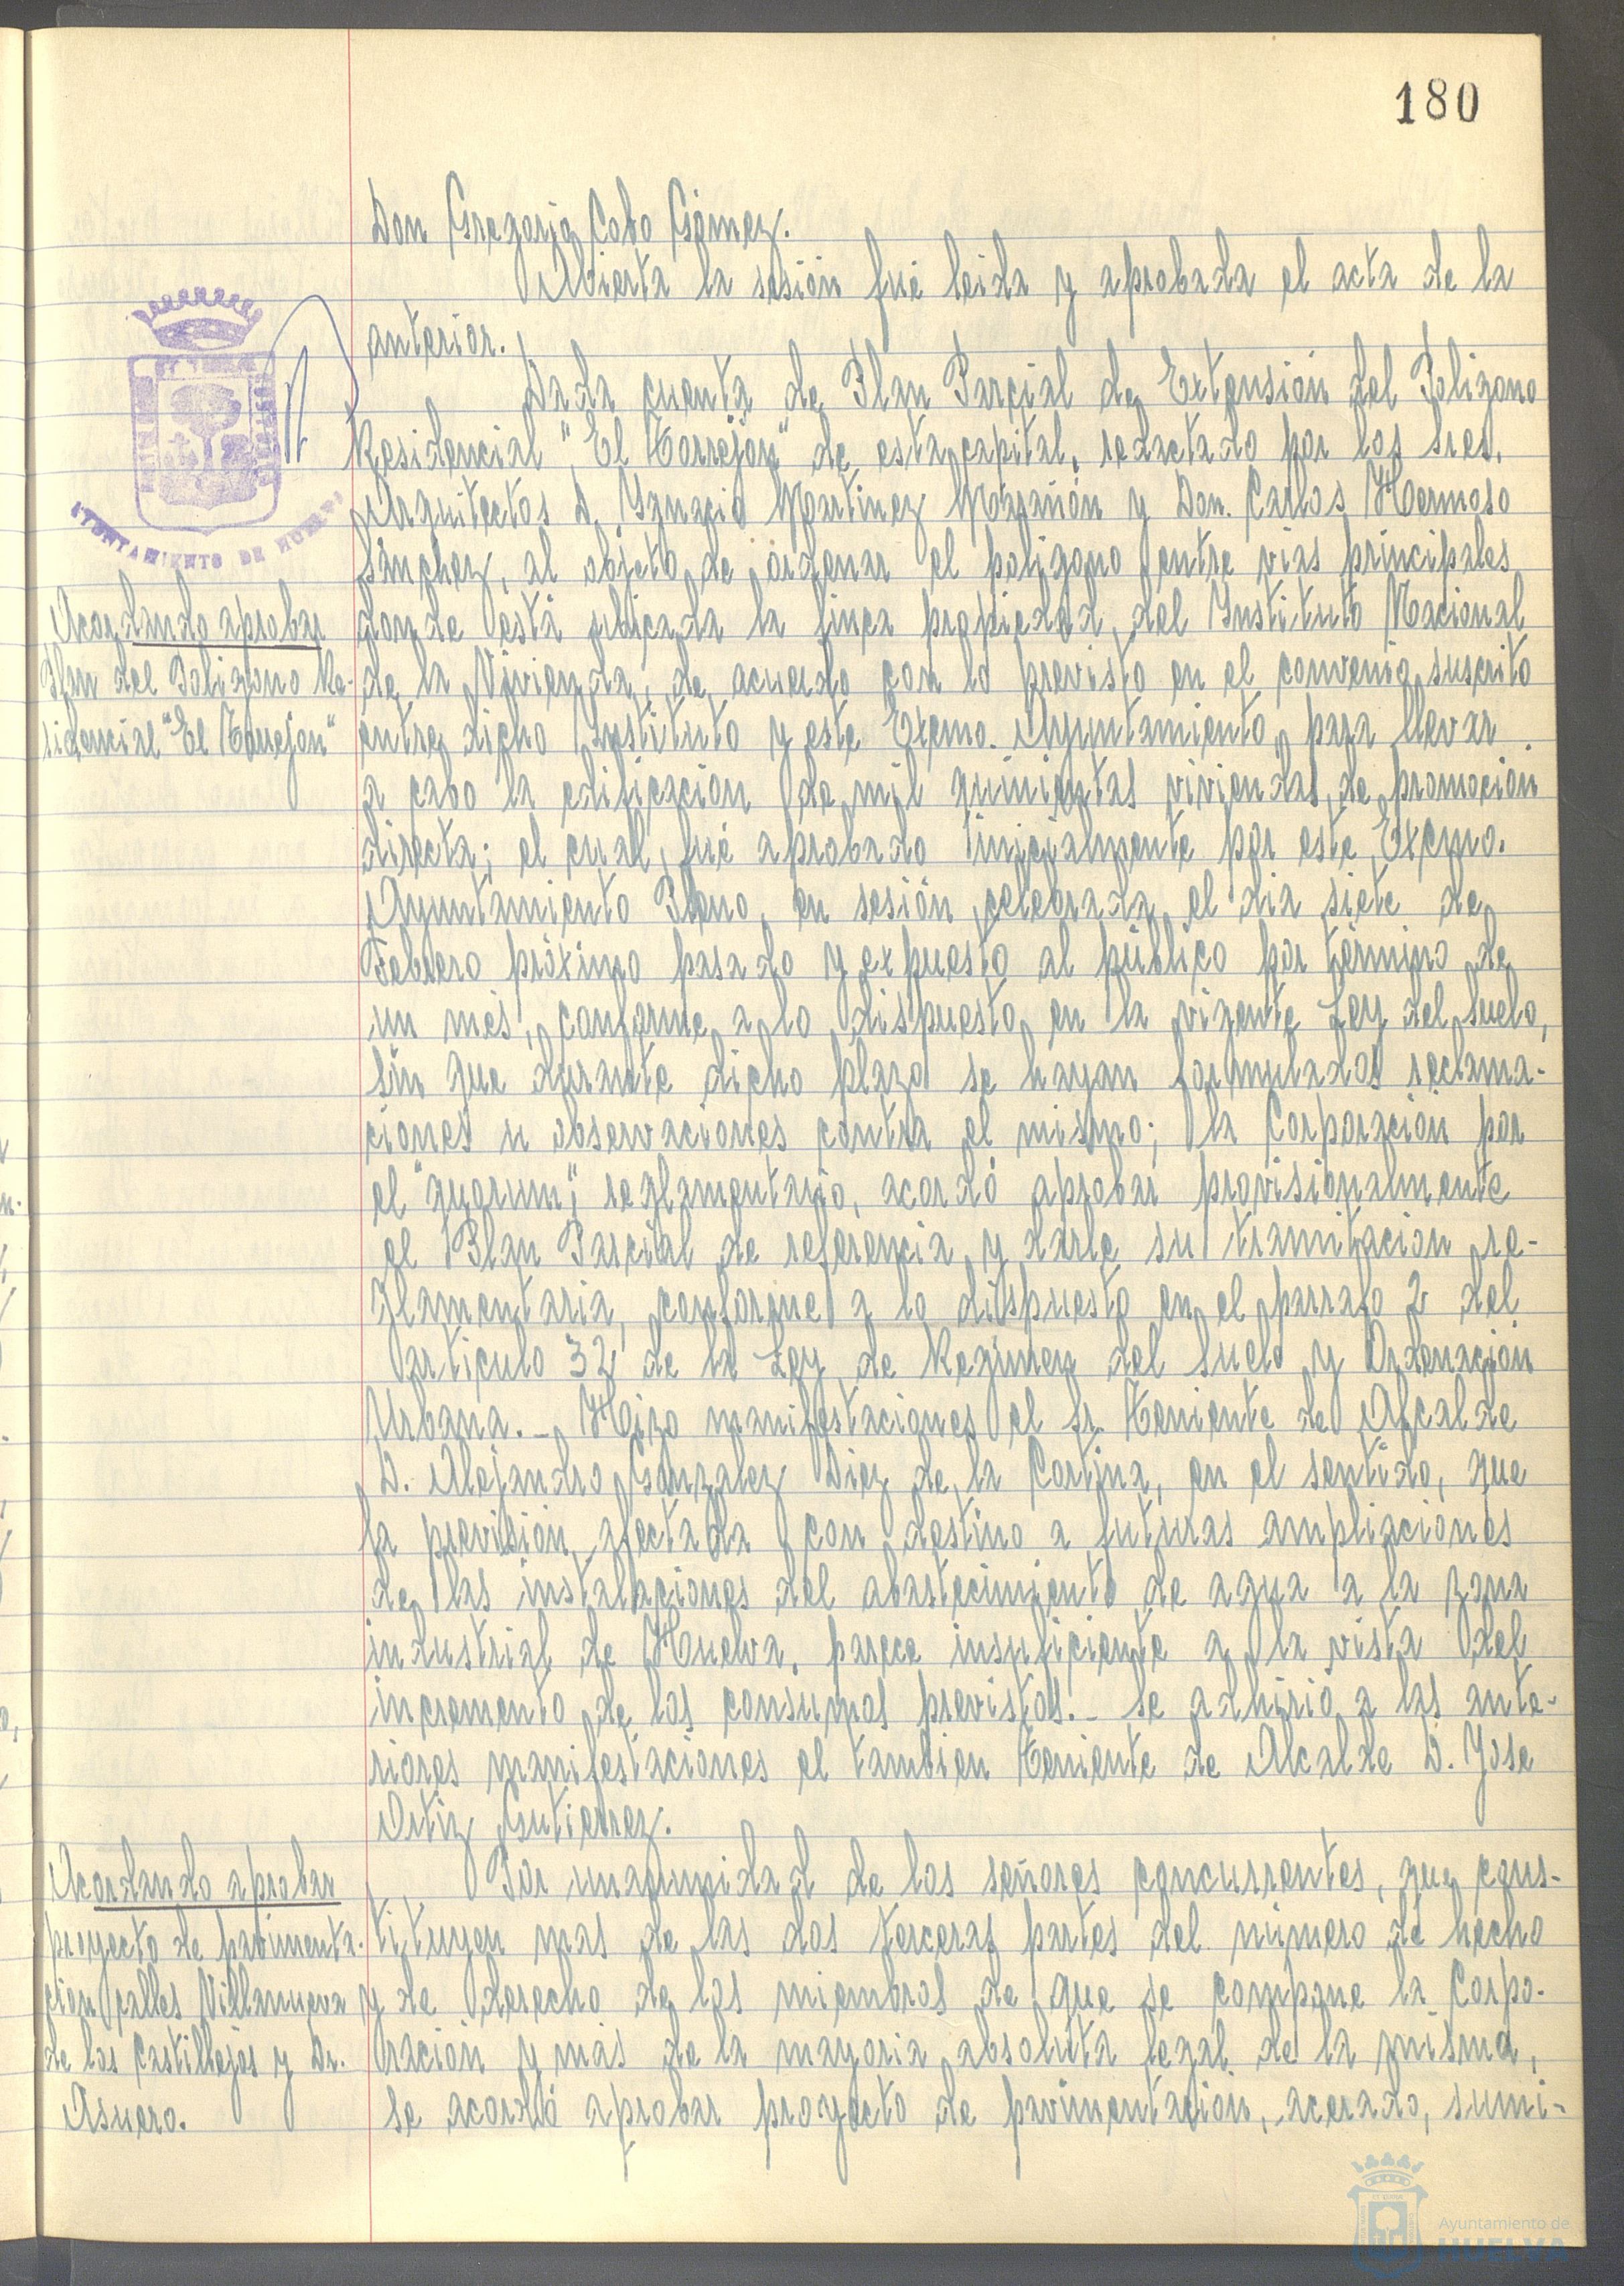 180
Don Gregorio Cobo Gómez.
Abierta la sesión fué leida y aprobada el acta de la
anterior.
Dada cuenta de Plan Parcial de Extensión del Poligono
Residencial "El Torrejón" de esta capital, redactado por los Sres.
Arquitectos D. Ignacio Martinez Marañón y Don. Carlos Hermoso
Sánchez, al objeto de ordenar el poligono entre vias principales
donde está ubicada la finca propiedad del Instituto Nacional
de la Vivienda, de acuerdo con lo previsto en el convenio suscrito
entre dicho Instituto y este Excmo. Ayuntamiento, para llevar
a cabo la edificación de mil quinientas viviendas de promoción
directa; el cual, fué aprobado inicialmente por este Excmo.
Ayuntamiento Pleno, en sesión celebrada el dia siete de
Febrero próximo pasado y expuesto al público por término de
un mes, conforme a lo dispuesto en la vigente Ley del Suelo,
sin que durante dicho plazo se hayan formulados reclama-
ciones u observaciones contra el mismo; la Corporación por
el "quorum", reglamentario, acordó aprobar provisionalmente
el Plan Parcial de referencia y darle su tramitación re-
glamentaria, conforme a lo dispuesto en el parrafo 2 del
articulo 32 de la Ley de Regimen del Suelo y Ordenación
Urbana.- Hizo manifestaciones el Sr. Teniente de Alcalde
D. Alejandro Gonzalez Diez de la Cortina, en el sentido, que
la previsión afectada con destino a futuras ampliaciones
de las instalaciones del abastecimiento de agua a la zona
industrial de Huelva, parece insuficiente a la vista del
incremento de los consumos previstos.- Se adhirió a las ante-
riores manifestaciones el tambien Teniente de Alcalde D. Jose
Ortiz Gutierrez.
Por unanimidad de los señores concurrentes, que cons-
tituyen mas de las dos terceras partes del número de hecho
y de derecho de los miembros de que se compone la Corpo-
ración y más de la mayoria absoluta legal de la misma,
se acordó aprobar proyecto de pavimentación, acerado, sumi-
AYUNTAMIENTO DE HUELVA
Acordando aprobar
Plan del Poligono Re-
sidencial "El Torrejon"
Acordando aprobar
proyecto de pavimenta-
cion calles Villanueva
de los Castillejos y Dr.
Asuero.
Ayuntamiento de
HUELVA